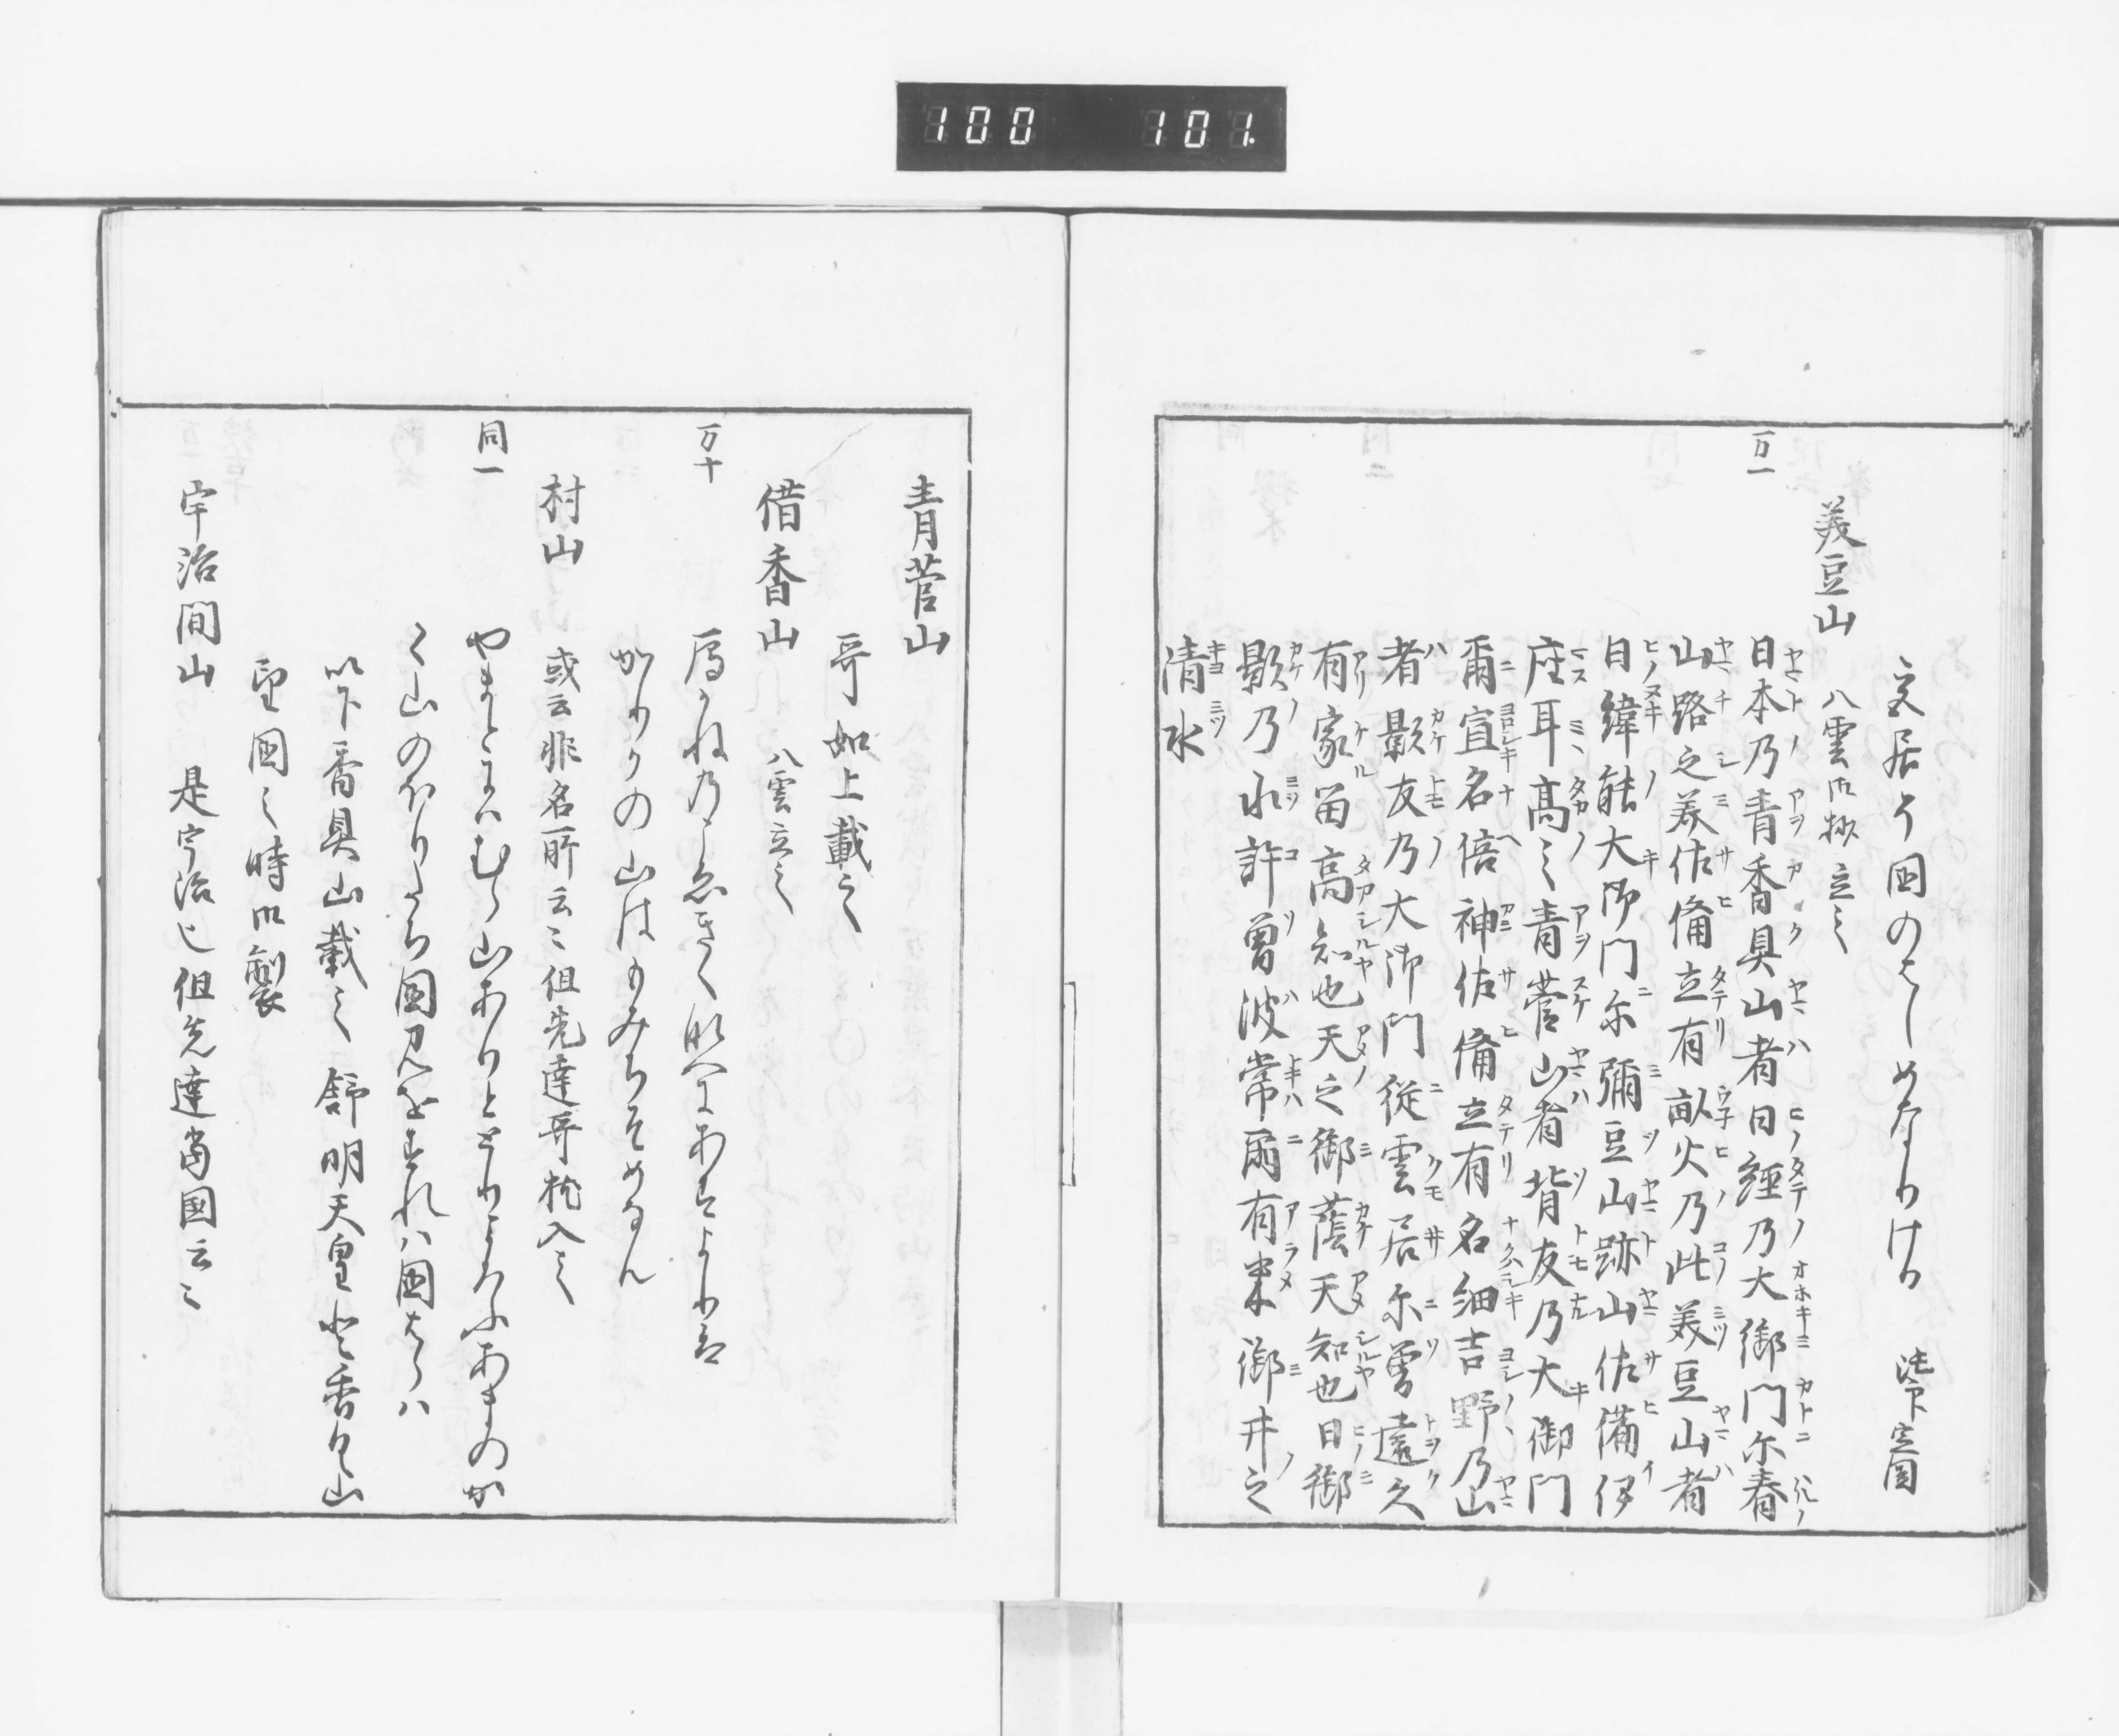 100 101
文居て国のはしめなりける
美豆山 八雲御抄立之
万一 日本乃青香具山者日経乃大御門尓春
山路之美佐備立有畝火乃此美豆山者
日緯能大御門尓彌豆山跡山佐備伊
座耳高之青菅山者背友乃大御門
爾宜名倍神佐備立有名細吉野乃山
者影友乃大御門従雲居尓曽遠久
有家留高知也天之御蔭天知也日御
影乃水許曽波常爾有米御井之
清水
青菅山
哥如上載之
借香山 八雲立之
万十 鴈かねのこゑきくなへにあすよりは
かりかの山はもみちそめなん
村山 或云非名所云々但先達哥枕入之
同一 やまとにはむら山ありととりよろふあまのか
く山のほりたち国見をすれハ国はらハ
以下香具山載之 舒明天皇登香具山
望国之時御製
宇治間山 是宇治也但先達当国云々